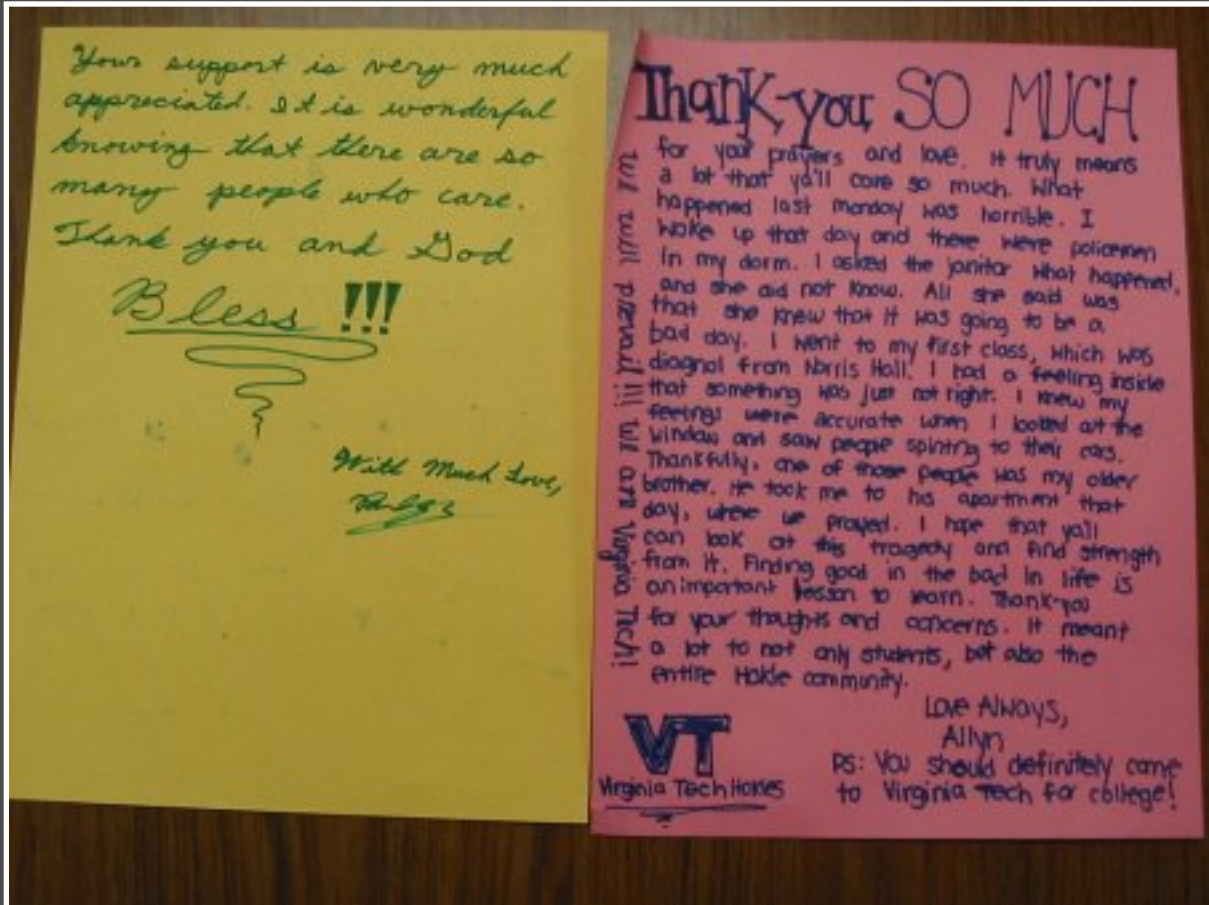 Your support is very much
appreciated. It is wonderful
knowing that there are so
many people who care.
Thank you and God
Bless !!!
With Much Love,
Thank-you SO MUCH
for your prayers and love. It truly means
a lot that ya'll care so much. What
happened last monday was horrible. I
woke up that day and there were policemen
in my dorm. I asked the janitor what happened,
and she did not know. All she said was
that she knew that it was going to be a
bad day. I went to my first class, which was
diagnol from Norris Hall. I had a feeling inside
that something was just not right. I knew my
feelings were accurate when I looked out the
window and saw people spinting to their cars.
Thankfully, one of those people was my older
brother. He took me to his apartment that
day, where we prayed. I hope that ya'll
can look at this tragedy and find strength
from it. Finding good in the bad in life is
an important lesson to learn. Thank-you
for your thoughts and concerns. It meant
a lot to not only students, but also the
entire Hokie community.
Love Always,
Allyn
PS: You should definitely come
to Virginia Tech for college!
VT
Virginia Tech Hokies
we will prevail!!! we are Virginia Tech!